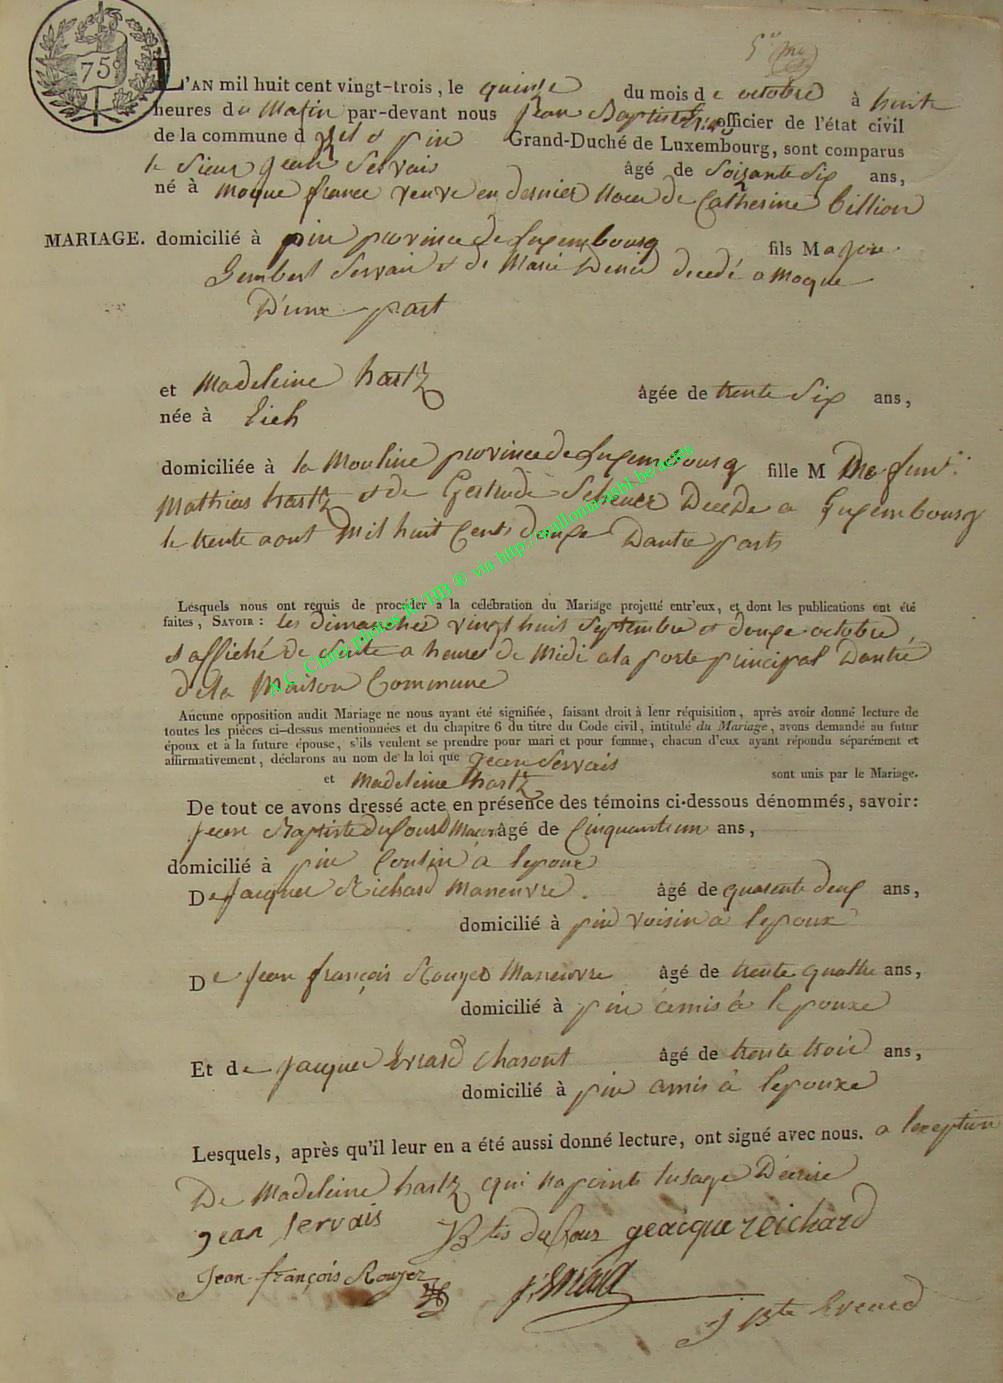 5me
75c
L'AN mil huit cent vingt-trois, le quinze du mois de octobre à huit
heures du Matin par-devant nous Jean Baptiste officier de l'état civil
de la commune d izel & pin Grand-Duché de Luxembourg, sont comparus
le Sieur Jean Servais âgé de Soixante Six ans,
né à Moque france veuve en dernier Noce de Catherine billion
MARIAGE. domicilié à pin province de Luxembourg fils Majeur
Lembert Servais & de Marie Denis decedé a Moque
D'une part
et Madeleine hartz âgée de trente Six ans,
née à Eich
domiciliée à la Mouline province de Luxembourg fille M De funt
Mathias hartz et de Gertrude Scheuer Decede a Luxembourg
le trente aout Mil huit Cents douze Dautre parts
Lesquels nous ont requis de procéder à la célébration du Mariage projetté entr'eux, et dont les publications ont été
faites, SAVOIR : les dimanches vingt huit Septembre et douze octobre,
& affiché de Suite a heures de Midi a la porte principal Dantré
de la Maison Commune
Aucune opposition audit Mariage ne nous ayant été signifiée, faisant droit à leur réquisition, après avoir donné lecture de
toutes les pièces ci-dessus mentionnées et du chapitre 6 du titre du Code civil, intitulé du Mariage, avons demandé au futur
époux et à la future épouse, s'ils veulent se prendre pour mari et pour femme, chacun d'eux ayant répondu séparément et
affirmativement, déclarons au nom de la loi que Jean Servais
et Madeleine hartz sont unis par le Mariage.
De tout ce avons dressé acte en présence des témoins ci-dessous dénommés, savoir:
Jean Baptiste Dufour âgé de Cinquantun ans,
domicilié à pin Coutin a lepoux
De Jacques Richard Maneuvre âgé de quarente deux ans,
domicilié à pin voisin a lepoux
De Jean françois Rouyer Maneuvre âgé de trente quattre ans,
domicilié à pin amis à lepouxe
Et de Jacques Evrard Charont âgé de trente trois ans,
domicilié à pin amis à lepouxe
Lesquels, après qu'il leur en a été aussi donné lecture, ont signé avec nous. a lexeption
De Madeleine hartz qui Na point lusage Décrire
jean servais Btis dufour geacque reichard
Jean-françois Rouyer j: Evrard
J Bte Evrard